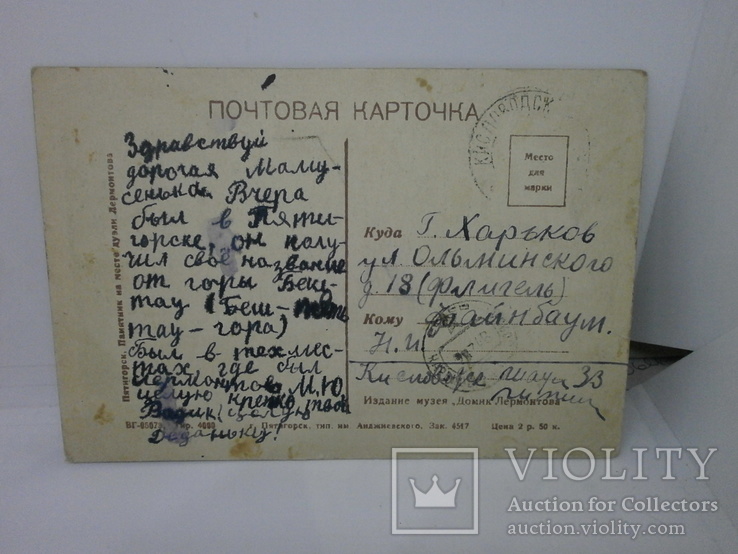 ПОЧТОВАЯ КАРТОЧКА
КИСЛОВОДСК
Место
для
марки
Пятигорск. Памятник на месте дуэли Лермонтова
Здравствуй
дорогая Маму-
сенька. Вчера
был в Пяти-
горске, он полу-
чил своё название
от горы Беш-
тау (Беш-пять
тау-гора)
Был в тех мес-
тах где был
Лермонтов М.Ю
целую крепко твой
Вадик (целую
Деданьку!
Куда Г. Харьков
ул Ольминского
д. 18 (флигель)
Кому Файнбаум.
Н.И.
Кисловодск 33
Издание музея „Домик Лермонтова"
Тир. 4000
Пятигорск, тип. им. Анджиевского, Зак. 4517
Цена 2 р. 50 к.
VIOLITY
Auction for Collectors
auction.violity.com